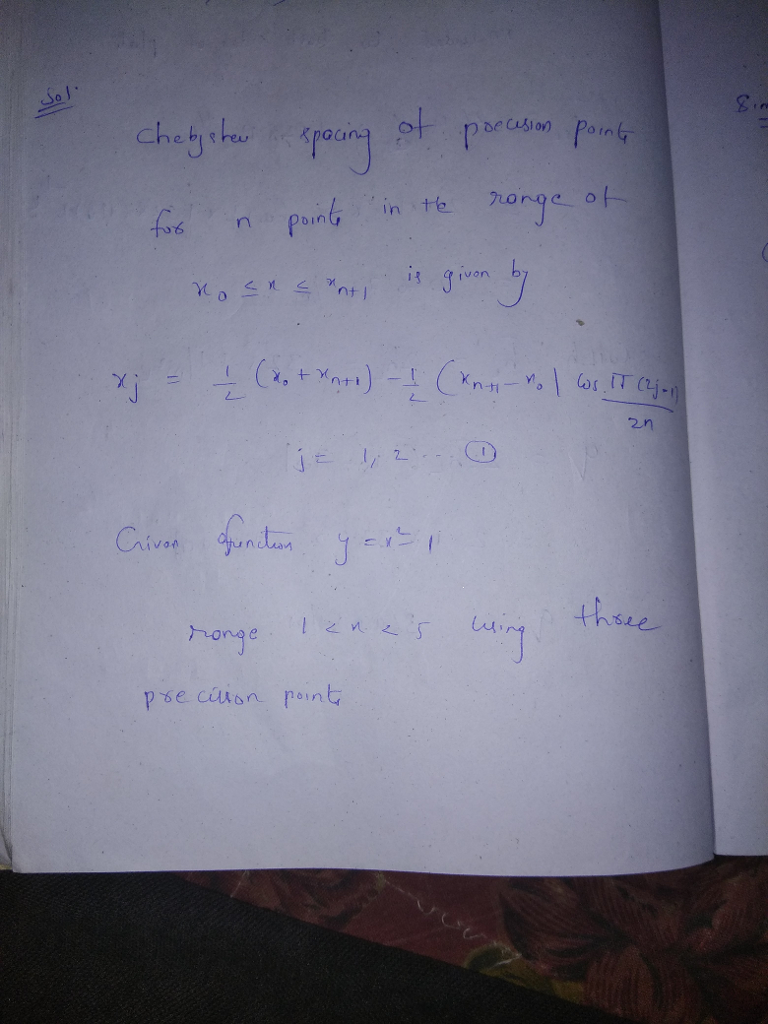 Sol.
Chebyshev spacing of precision points
for n points in the range of
x₀ ≤ x ≤ xₙ₊₁ is given by
xj = 1/2 (x₀ + xₙ₊₁) - 1/2 (xₙ₊₁ - x₀) cos π(2j-1)/2n
j = 1, 2 ... ①
Given function y = x² - 1
range 1 < x < 5 using three
precision points